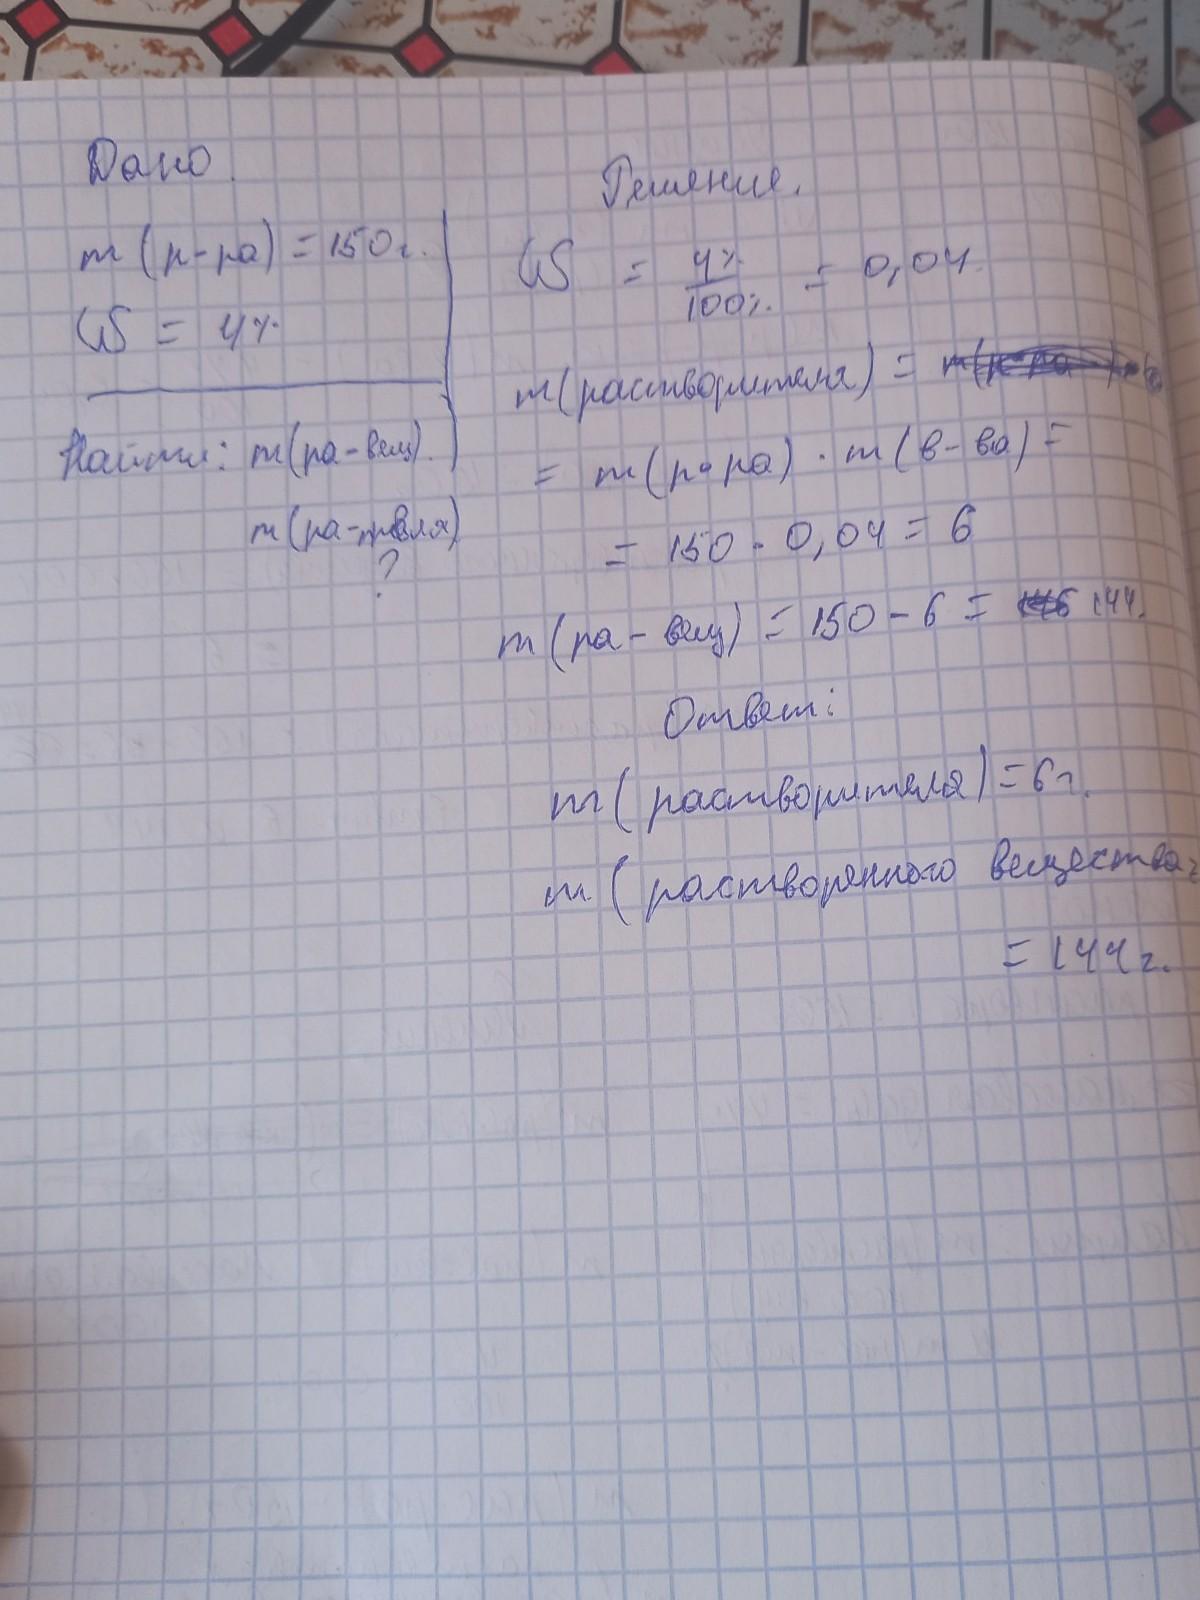 Дано.
m (р-ра) = 150 г.
ω = 4%
Найти: m(ра-вещ).
m(ра-твля)
?
Решение.
ω = 4% / 100% = 0,04.
m(растворителя) =
= m(р-ра) · m(в-ва) =
= 150 · 0,04 = 6
m(ра-вещ) = 150 - 6 = 144.
Ответ:
m(растворителя) = 6г.
m(растворенного вещества =
= 144 г.